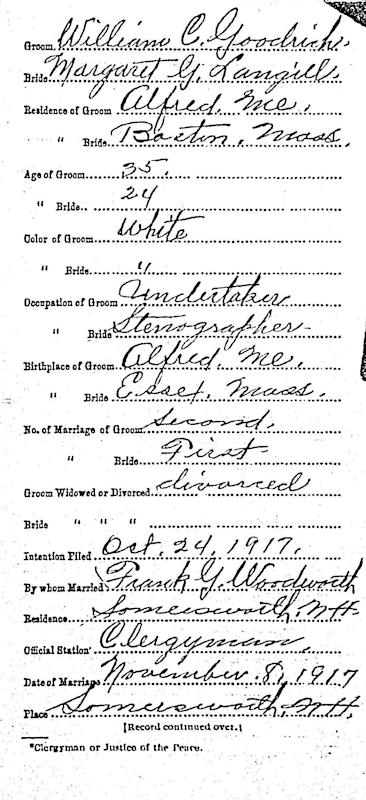 Groom William C. Goodrich.
Bride Margaret G. Langill.
Residence of Groom Alfred, Me.
" Bride Boston, Mass.
Age of Groom 35.
" Bride 24
Color of Groom White
" Bride "
Occupation of Groom Undertaker
" Bride Stenographer
Birthplace of Groom Alfred, Me.
" Bride Essex, Mass.
No. of Marriage of Groom second.
" Bride First
Groom Widowed or Divorced divorced
Bride " " "
Intention Filed Oct. 24, 1917.
By whom Married Frank G. Woodworth
Residence Somersworth, NH.
Official Station* Clergyman
Date of Marriage November 8, 1917
Place Somersworth, NH.
[Record continued over.]
*Clergyman or Justice of the Peace.